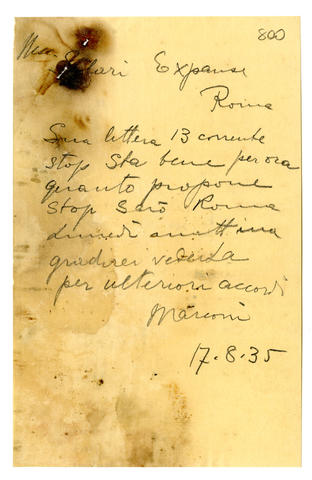 800
Expanse
Roma
Sua lettera 13 corrente
stop Sta bene per ora
quanto propone
Stop Sarò Roma
lunedì mattina
gradirei vederla
per ulteriori accordi
Marconi
17.8.35